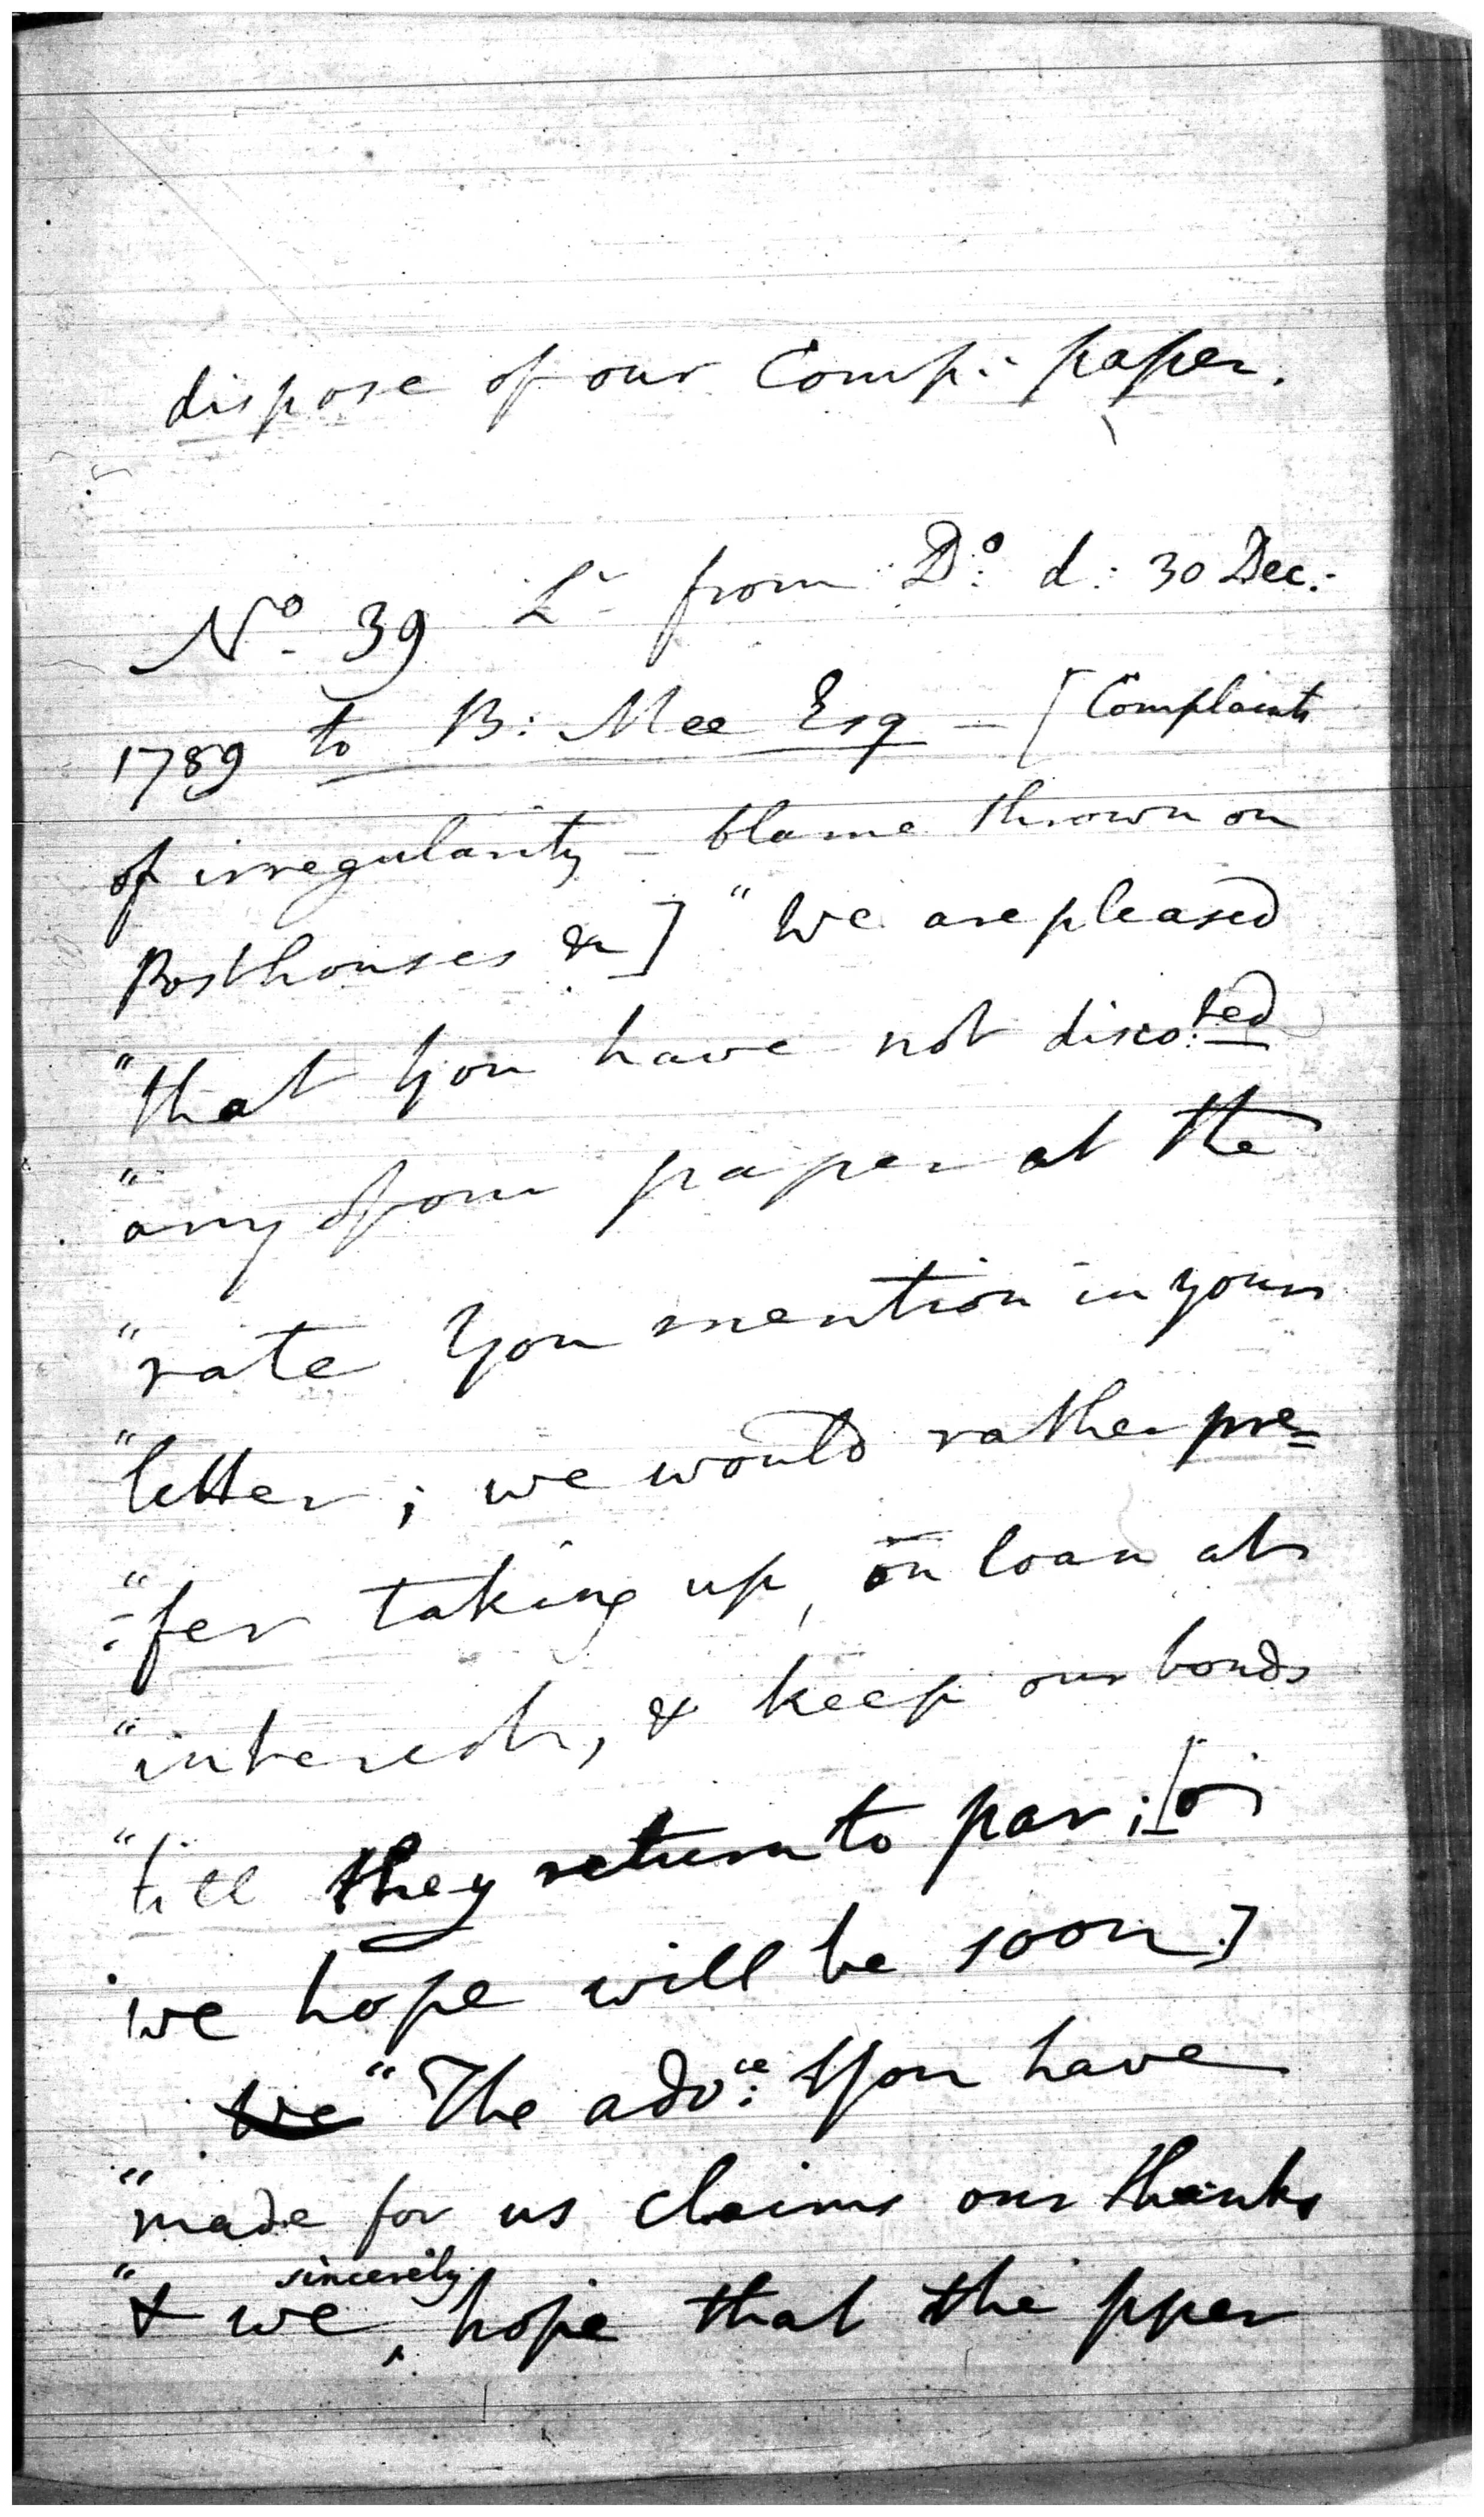 dispose of our Comp: paper.
No. 39 Lr from Do: d: 30 Dec:
1789 to B: Mee Esq — [Complaints
of irregularity — blame thrown on
Posthouses &c] "We are pleased
"that you have not disco:ted
"any of our paper at the
"rate you mention in your
"letter; we would rather pre=
"=fer taking up, on loan at
"interest, & keep our bonds
"till they return to par; [
we hope will be soon.]
We "The advce: you have
"made for us claims our thanks
"& we sincerely hope that the pper